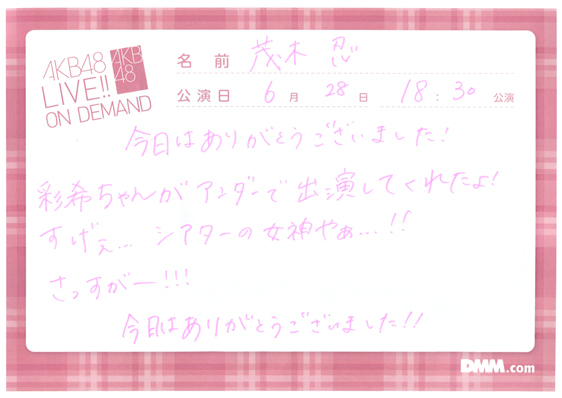 AKB48
LIVE!!
ON DEMAND
AKB
48
名前 茂木 忍
公演日 6月 28日 18:30 公演
今日はありがとうございました!
彩希ちゃんがアンダーで出演してくれたよ!
すげぇ... シアターの女神やぁ...!!
さっすがー!!!
今日はありがとうございました!!
DMM.com